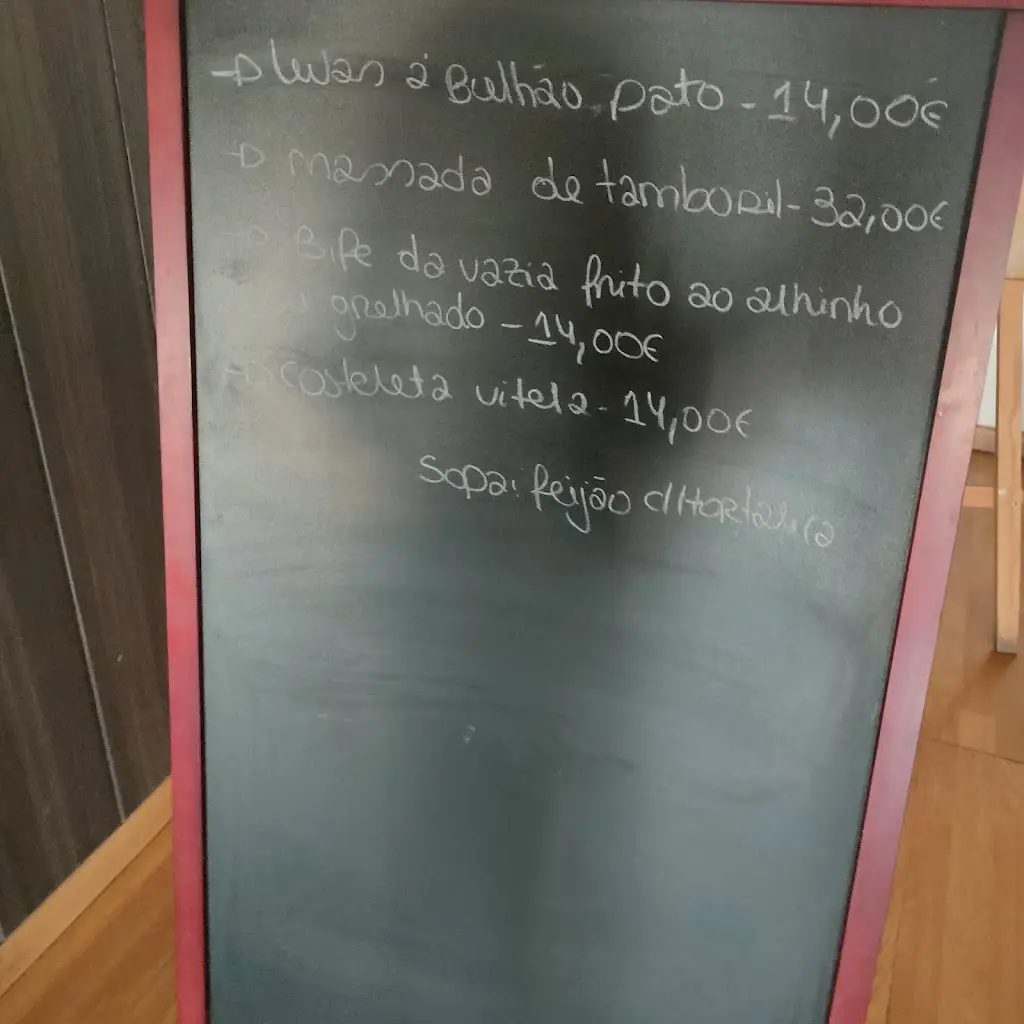 → lulas à Bulhão pato - 14,00€
→ massada de tamboril - 32,00€
→ Bife da vazia frito ao alhinho
ou grelhado - 14,00€
→ costeleta vitela - 14,00€
Sopa: feijão c/Hortaliça